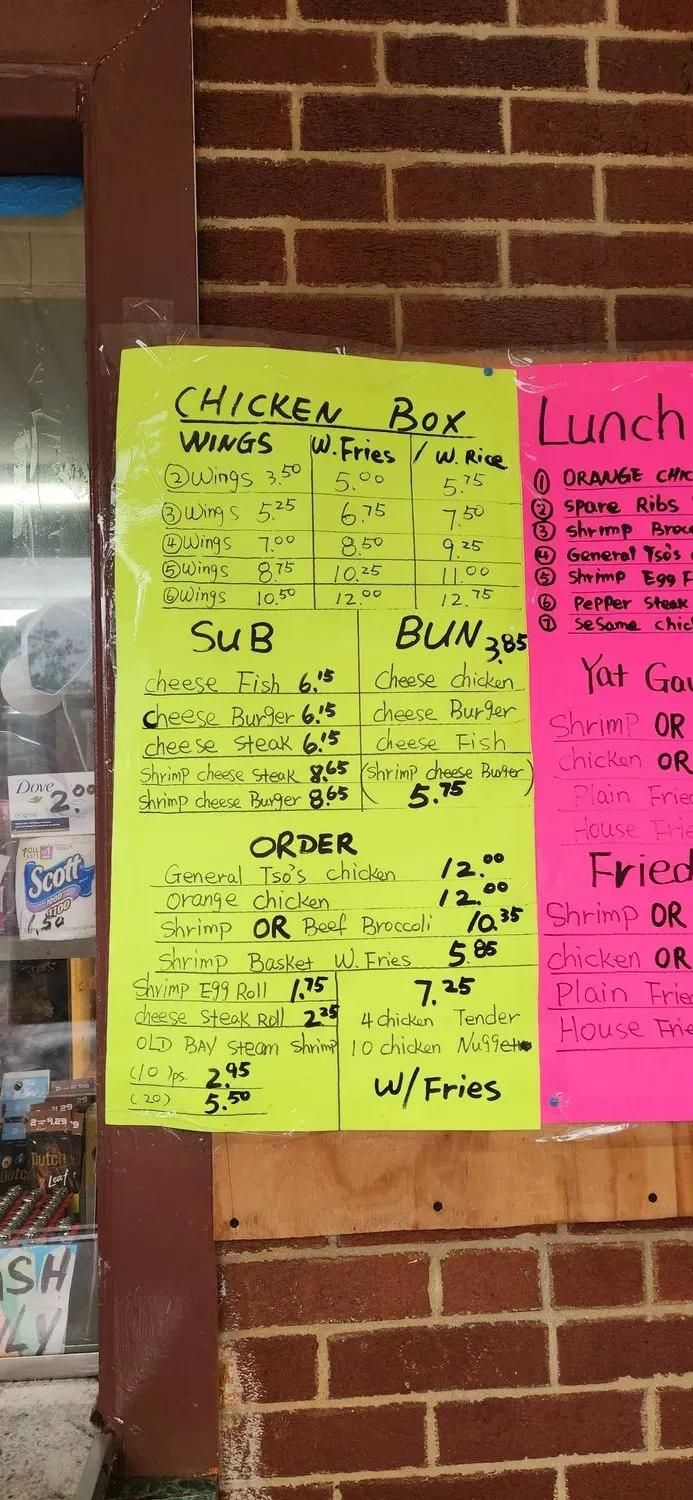 CHICKEN BOX
WINGS W. Fries / W. Rice
② Wings 3.50 5.00 5.75
③ Wings 5.25 6.75 7.50
④ Wings 7.00 8.50 9.25
⑤ Wings 8.75 10.25 11.00
⑥ Wings 10.50 12.00 12.75
SUB
cheese Fish 6.15
cheese Burger 6.15
cheese steak 6.15
Shrimp cheese steak 8.65
Shrimp cheese Burger 8.65
BUN 3.85
cheese chicken
cheese Burger
cheese Fish
(Shrimp cheese Burger)
5.75
ORDER
General Tso's chicken 12.00
Orange chicken 12.00
Shrimp OR Beef Broccoli 10.35
Shrimp Basket W. Fries 5.85
Shrimp Egg Roll 1.75
cheese steak Roll 2.25
OLD BAY steam shrimp
(10) ps. 2.95
(20) 5.50
7.25
4 chicken Tender
10 chicken Nugget
W/Fries
Lunch
① ORANGE CHIC
② spare Ribs
③ shrimp Broc
④ General Tso's
⑤ Shrimp Egg F
⑥ Pepper steak
⑦ sesame chic
Yat Ga
Shrimp OR
chicken OR
Plain Frie
House Frie
Fried
Shrimp OR
chicken OR
Plain Frie
House Frie
Dove
2.00
Scott
1000
1100
1.50
Dutch
Leaf
SH
LY